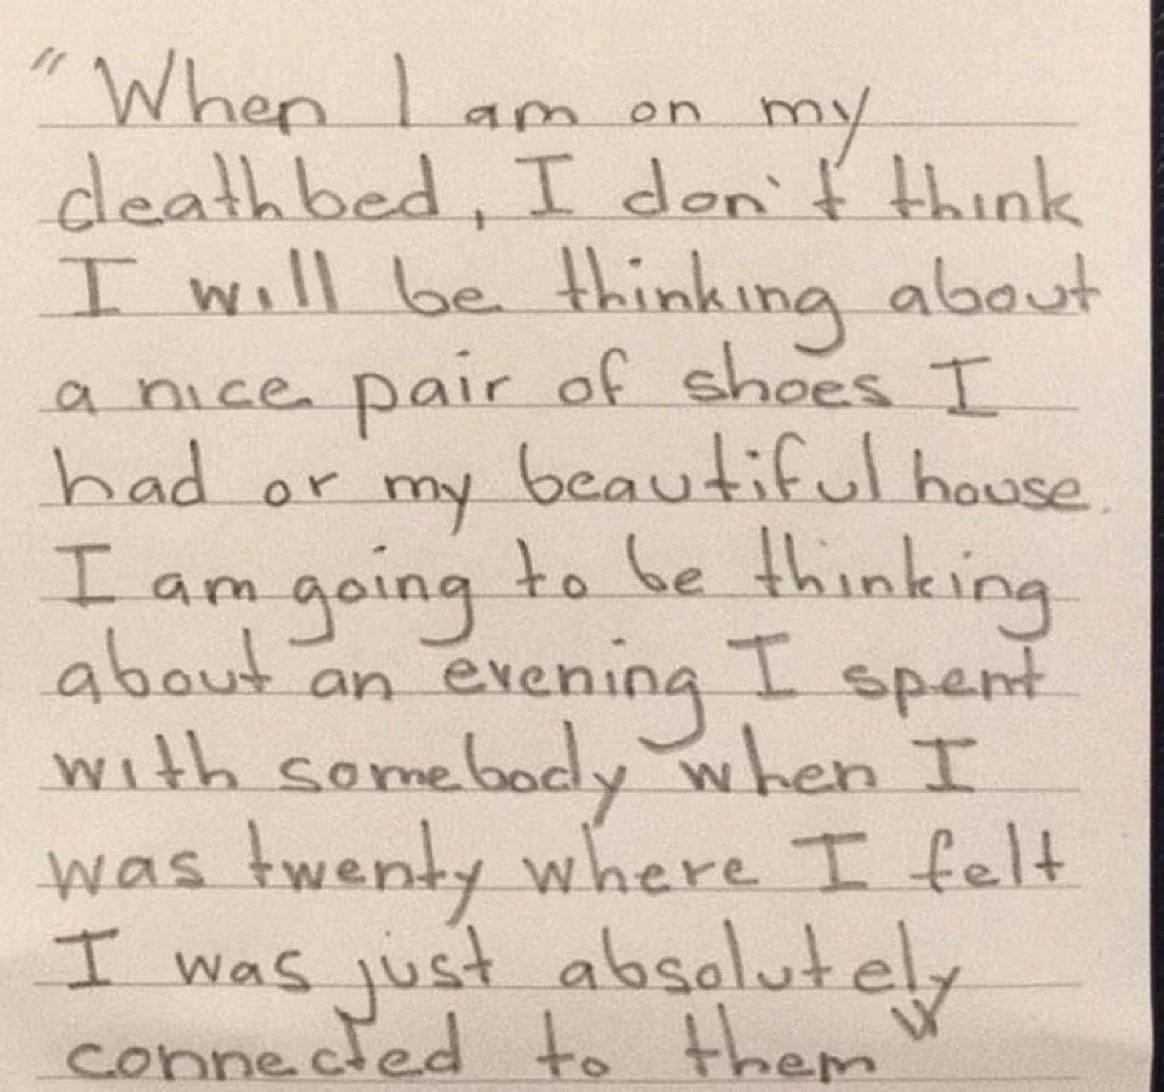 "When I am on my
deathbed, I don't think
I will be thinking about
a nice pair of shoes I
had or my beautiful house.
I am going to be thinking
about an evening I spent
with somebody when I
was twenty where I felt
I was just absolutely
connected to them"